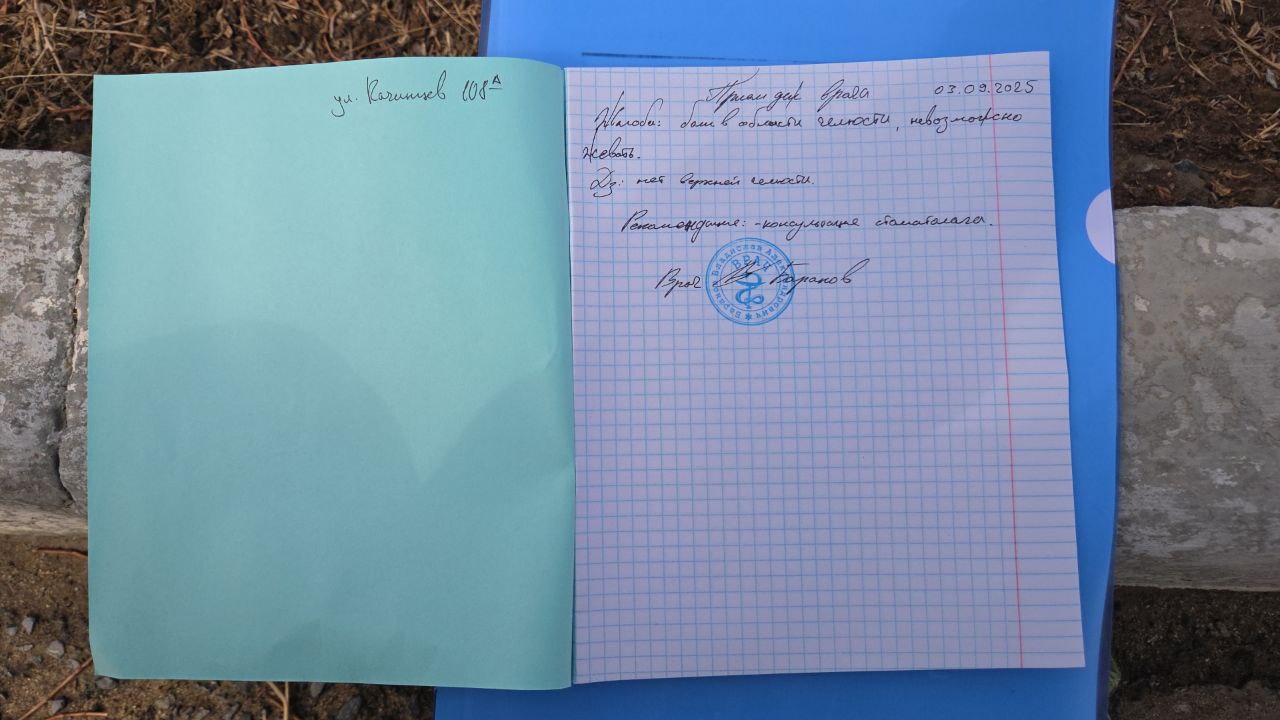 ул. Качинцев 108А
Прием деж врача 03.09.2025
Жалобы: боли в области челюсти, невозможно
жевать.
Дз: нет верхней челюсти.
Рекомендации: -консультация стоматолога.
Врач Баранов
Баранов Владислав Александрович
ВРАЧ